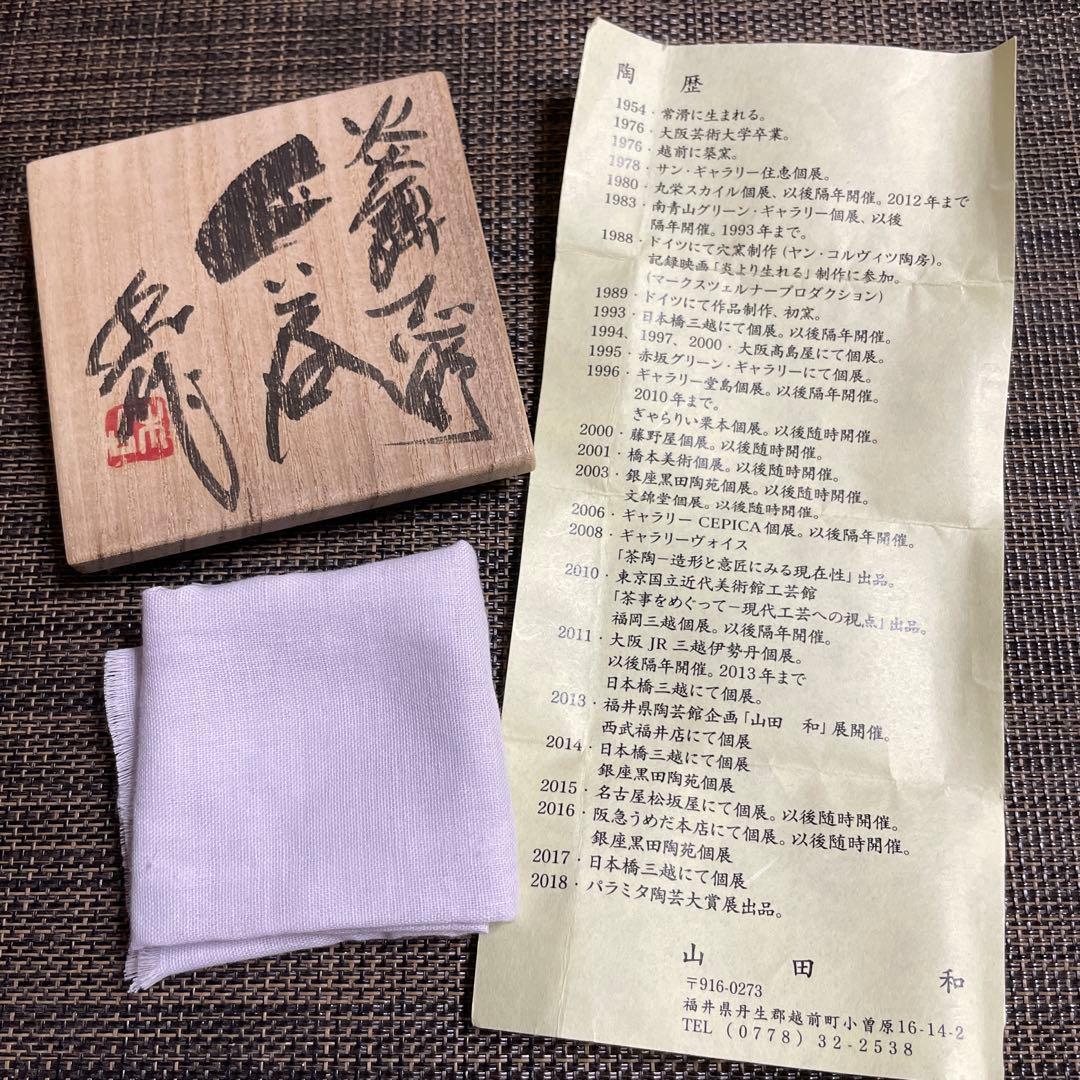 陶 歴
1954・常滑に生まれる。
1976・大阪芸術大学卒業。
1976・越前に築窯。
1978・サン・ギャラリー住恵個展。
1980・丸栄スカイル個展、以後隔年開催。2012年まで
1983・南青山グリーン・ギャラリー個展、以後
隔年開催。1993年まで。
1988・ドイツにて穴窯制作(ヤン・コルヴィツ陶房)。
記録映画「炎より生れる」制作に参加。
(マークスツェルナープロダクション)
1989・ドイツにて作品制作、初窯。
1993・日本橋三越にて個展。以後隔年開催。
1994、1997、2000・大阪髙島屋にて個展。
1995・赤坂グリーン・ギャラリーにて個展。
1996・ギャラリー堂島個展。以後隔年開催。
2010年まで。
ぎゃらりい栗本個展。以後随時開催。
2000・藤野屋個展。以後随時開催。
2001・橋本美術個展。以後随時開催。
2003・銀座黒田陶苑個展。以後随時開催。
文錦堂個展。以後随時開催。
2006・ギャラリー CEPICA個展。以後隔年開催。
2008・ギャラリーヴォイス
「茶陶−造形と意匠にみる現在性」出品。
2010・東京国立近代美術館工芸館
「茶事をめぐって−現代工芸への視点」出品。
福岡三越個展。以後隔年開催。
2011・大阪 JR 三越伊勢丹個展。
以後隔年開催。2013年まで
日本橋三越にて個展。
2013・福井県陶芸館企画「山田 和」展開催。
西武福井店にて個展
2014・日本橋三越にて個展
銀座黒田陶苑個展
2015・名古屋松坂屋にて個展。以後随時開催。
2016・阪急うめだ本店にて個展。以後随時開催。
銀座黒田陶苑個展
2017・日本橋三越にて個展
2018・パラミタ陶芸大賞展出品。
山 田 和
〒916-0273
福井県丹生郡越前町小曽原16-14-2
TEL (0778) 32-2538